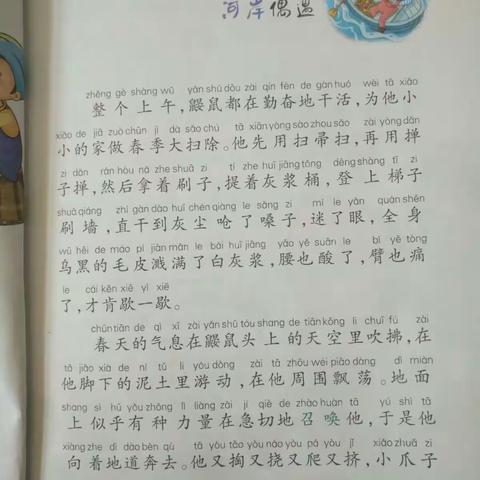 河岸偶遇
zhěng gè shàng wǔ yǎn shǔ dōu zài qín fèn de gàn huó wèi tā xiǎo
整个上午,鼹鼠都在勤奋地干活,为他小
xiǎo de jiā zuò chūn jì dà sǎo chú tā xiān yòng sào zhou sǎo zài yòng dǎn
小的家做春季大扫除。他先用扫帚扫,再用掸
zi dǎn rán hòu ná zhe shuā zi tí zhe huī jiāng tǒng dēng shàng tī zi
子掸,然后拿着刷子,提着灰浆桶,登上梯子
shuā qiáng zhí gàn dào huī chén qiàng le sǎng zi mí le yǎn quán shēn
刷墙,直干到灰尘呛了嗓子,迷了眼,全身
wū hēi de máo pí jiàn mǎn le bái huī jiāng yāo yě suān le bì yě tòng
乌黑的毛皮溅满了白灰浆,腰也酸了,臂也痛
le cái kěn xiē yì xiē
了,才肯歇一歇。
chūn tiān de qì xī zài yǎn shǔ tóu shang de tiān kōng li chuī fú zài
春天的气息在鼹鼠头上的天空里吹拂,在
tā jiǎo xià de ní tǔ li yóu dòng zài tā zhōu wéi piāo dàng dì miàn
他脚下的泥土里游动,在他周围飘荡。地面
shang sì hū yǒu zhǒng lì liàng zài jí qiè de zhào huàn tā yú shì tā
上似乎有种力量在急切地召唤他,于是他
xiàng zhe dì dào bēn qù tā yòu tāo yòu náo yòu pá yòu jǐ xiǎo zhuǎ zi
向着地道奔去。他又掏又挠又爬又挤,小爪子